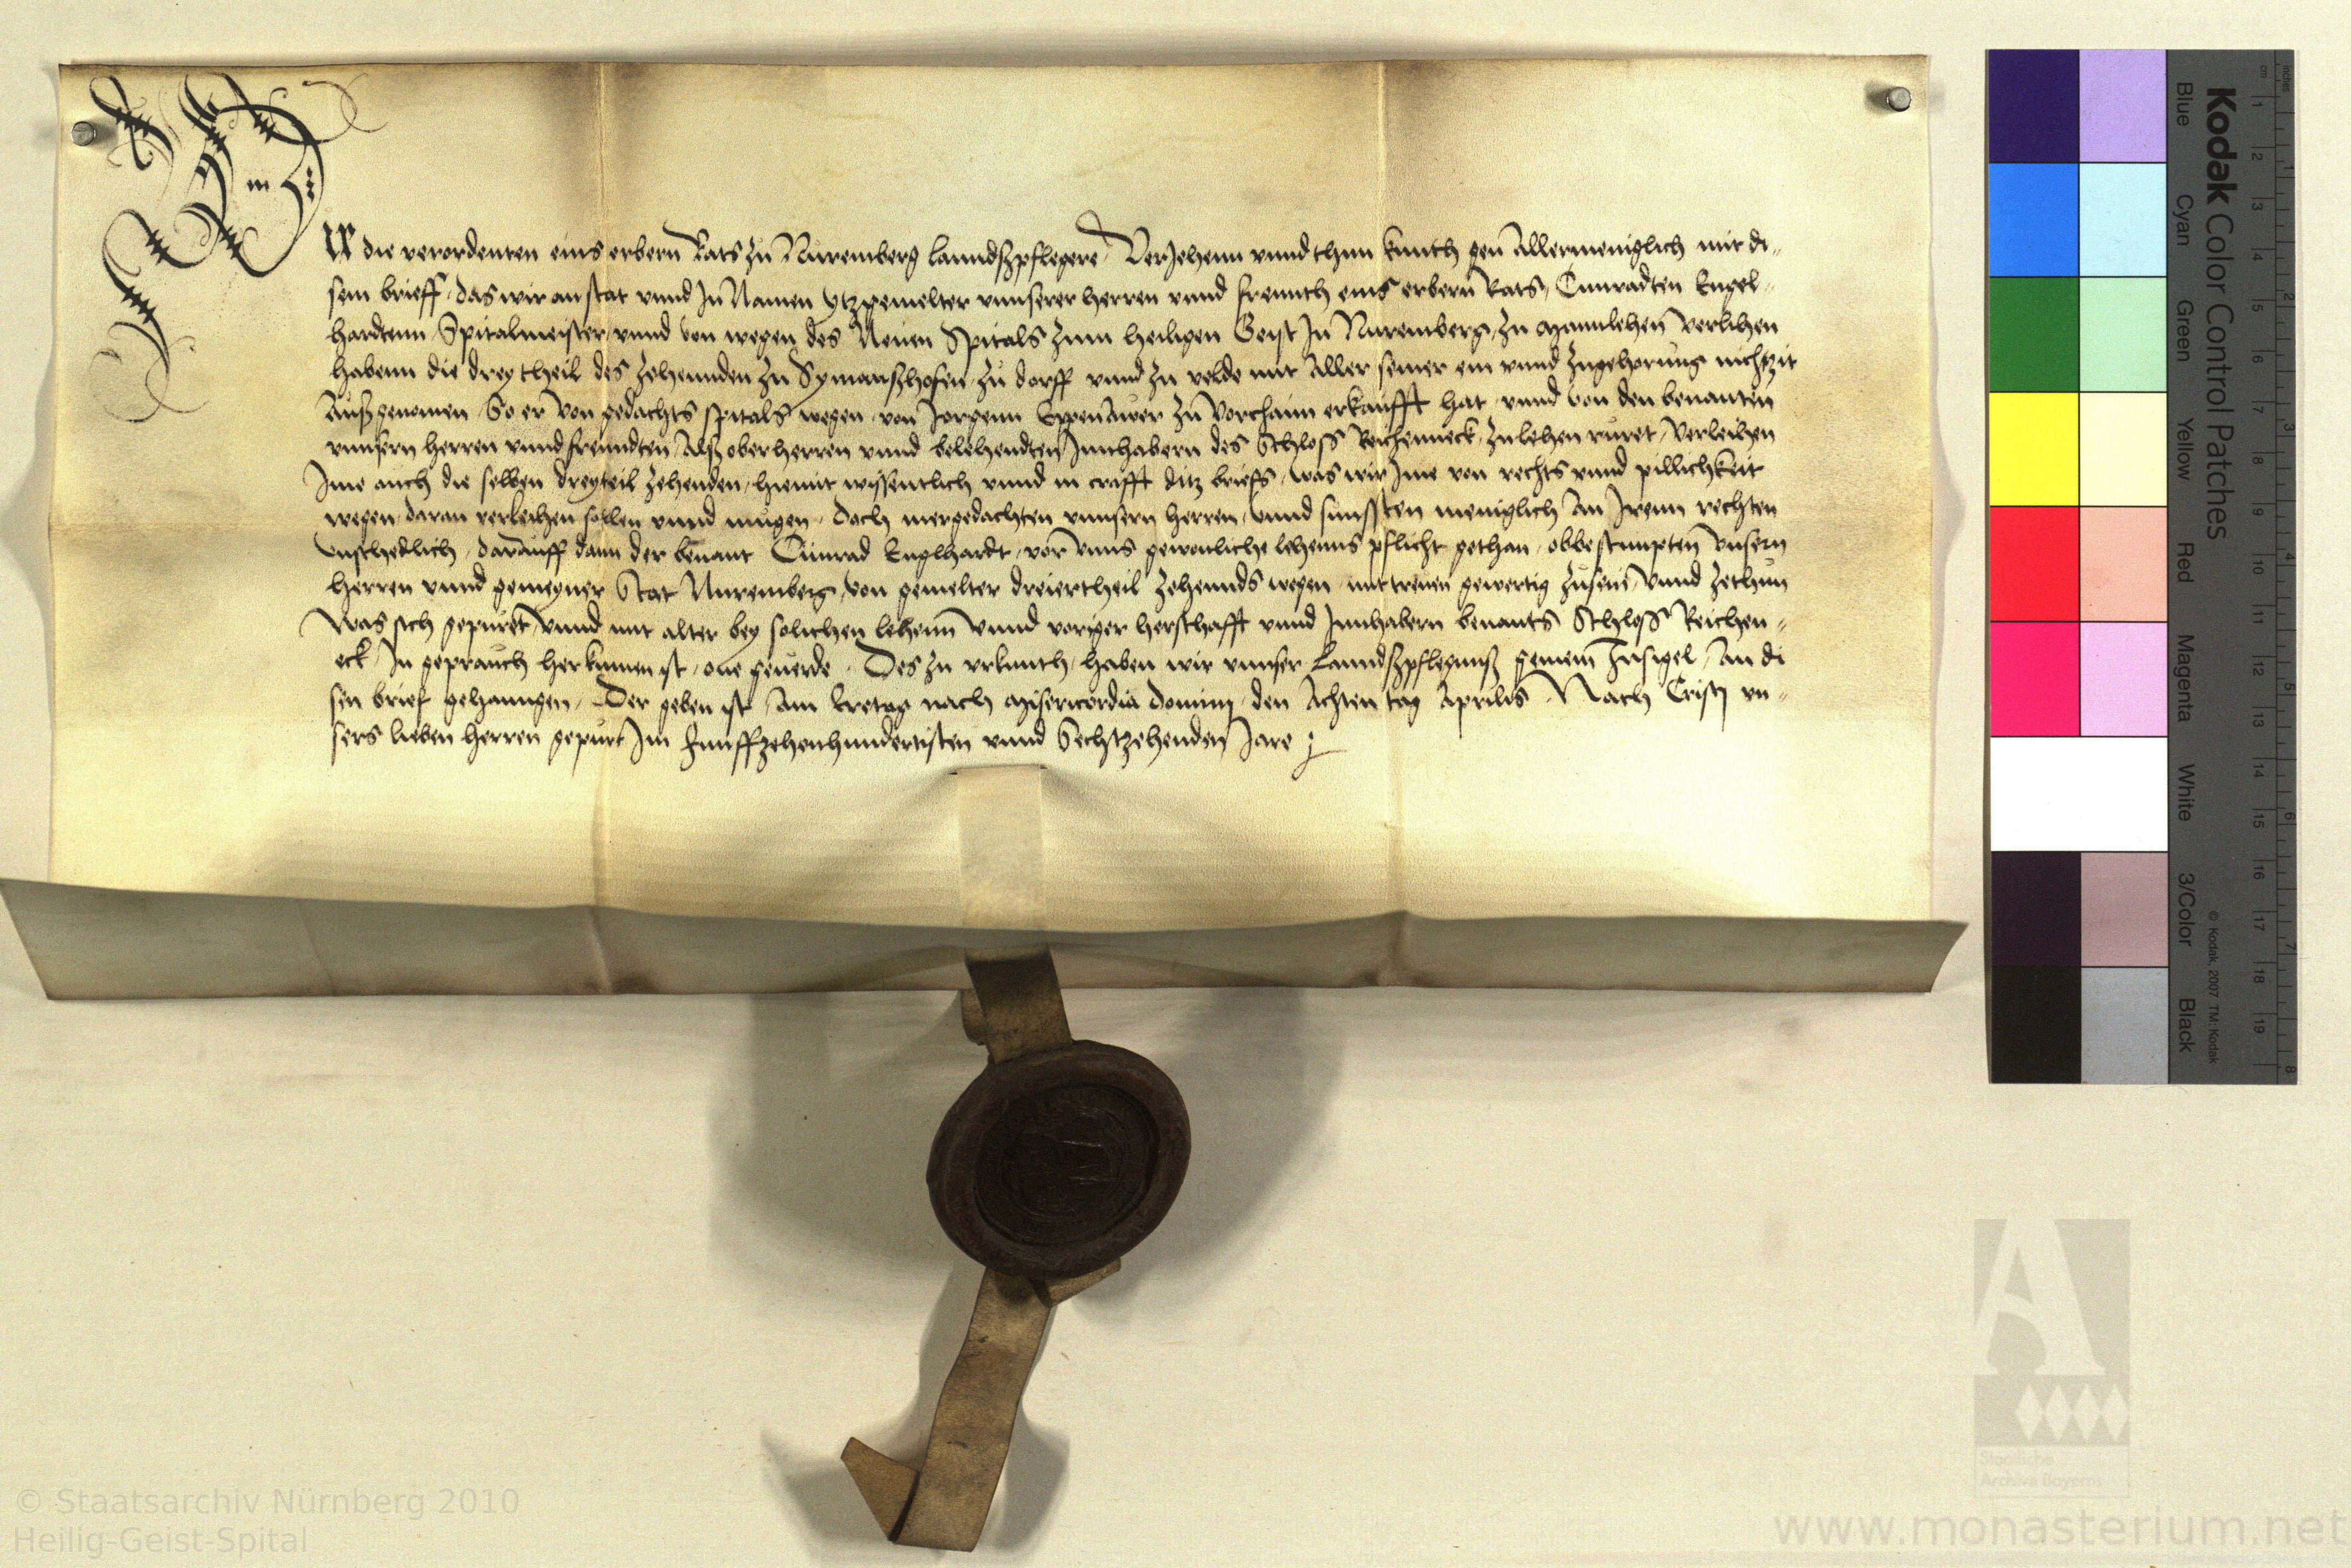 Wir die verordenten eins erbern Rats zu Nuremberg lanndßpflegere Verjehenn vnnd thun kunth gen Allermeniglich mit di-
sem brieff, das wir an stat vnnd In Namen ytzgemelter vnnserer herren vnnd freunth eins erbern Rats, Cunradten Engel-
hardtenn Spitalmeister vnnd von wegen des Neuen Spitals zum heiligen Geist In Nuremberg, zu Mannlehen verlihen
habenn die drey theil des zehennden zu Symanßhofen zu dorff vnnd zu velde mit Aller seiner ein vnnd zugehorung nichtzit
Außgenomen So er von gedachts spitals wegen von Jorgenn Eppenawer zu Vorchaim erkaufft hat vnnd von den benanten
vnnsern herren vnnd freundten, Alß oberherren vnnd belehendten Innhabern des Schloss Reichenneck zu lehen ruret, Verleihen
Ime auch die selben dreyteil zehenden, hiemit wissentlich vnnd in crafft ditz briefs, was wir Ime von rechts vnnd pillichkeit
wegen daran verleihen sollen vnnd mugen, doch mergedachten vnnsern herren, vnnd sunssten meniglich An Irenn rechten
vnschedlich, darauff dann der benant Cunrad Englhardt, vor vnns gewonliche lehenns pflicht gethan, obbestimpten vnsern
herren vnnd gemeyner Stat Nuremberg, von gemelter dreiertheil zehennds wegen mit treuen gewertig zusein, vnnd zethun
Was sich gepuret, vnnd mit alter bey solichen lehenn vnnd voriger herschafft vnnd Innhabern benants Schloss Reichen-
eck, In geprauch herkumen ist, one geuerde. Des zu vrkunth, haben wir vnnser Lanndßpflegnuß gemein Innsigel, An di
sen brief gehanngen, Der geben ist, Am Eretag nach Misericordia Domini, den Achten tag Aprilis Nach Cristi vn-
sers lieben herren gepurt Im funffzehenhundertisten vnnd Sechtzehenden Jare
Kodak Color Control Patches
Blue
Cyan
Green
Yellow
Red
Magenta
White
3/Color
Black
© Kodak, 2007 TM: Kodak
cm 1 2 3 4 5 6 7 8 9 10 11 12 13 14 15 16 17 18 19
inches 1 2 3 4 5 6 7 8
Staatliche
Archive Bayerns
© Staatsarchiv Nürnberg 2010
Heilig-Geist-Spital
www.monasterium.net